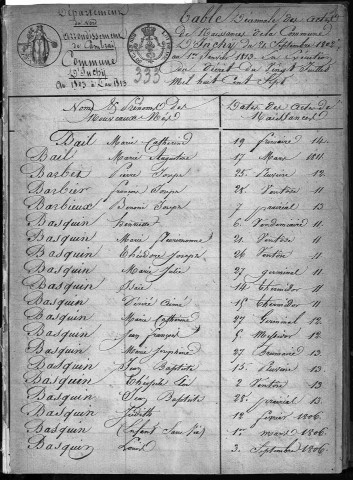 Département
du Nord
Arrondissement
de Cambrai
Commune
D'Inchy
An 1803 à l'an 1813
333
Table Décennale des Actes
de Naissances de la Commune
D'Inchy du 21 Septembre 1802
au 1er Janvier 1813 en Exécution
du Décret du Vingt Juillet
Mil huit Cent Sept
Noms & Prénoms des Nouveaux Nés Dates des Actes de Naissances
Bail Marie Catherine 19 frimaire 14.
Bail Marie Augustine 17 Mars 1811
Barbier Pierre Joseph 25. 12.
Barbier Joseph 28. Ventôse 11.
Barbieux Benoni Joseph 7 prairial 13
Basquin 6. Vendemiaire 11.
Basquin Marie 21. Ventôse 11.
Basquin Théodore Joseph 26 Ventôse 11
Basquin Marie Julie 27 germinal 11.
Basquin 14 thermidor 11
Basquin Aimé 15 thermidor 11.
Basquin Marie Catherine 27 Germinal 12.
Basquin Jean François 5. Messidor 12.
Basquin Marie Josephine 27 13.
Basquin Jean Baptiste 15 13.
Basquin Théophile 2 Ventôse 13
Basquin Jean Baptiste 28. prairial 13
Basquin 12 février 1806.
Basquin (Enfant Sans Vie) 1er mars 1806.
Basquin Louis 3. Septembre 1806.